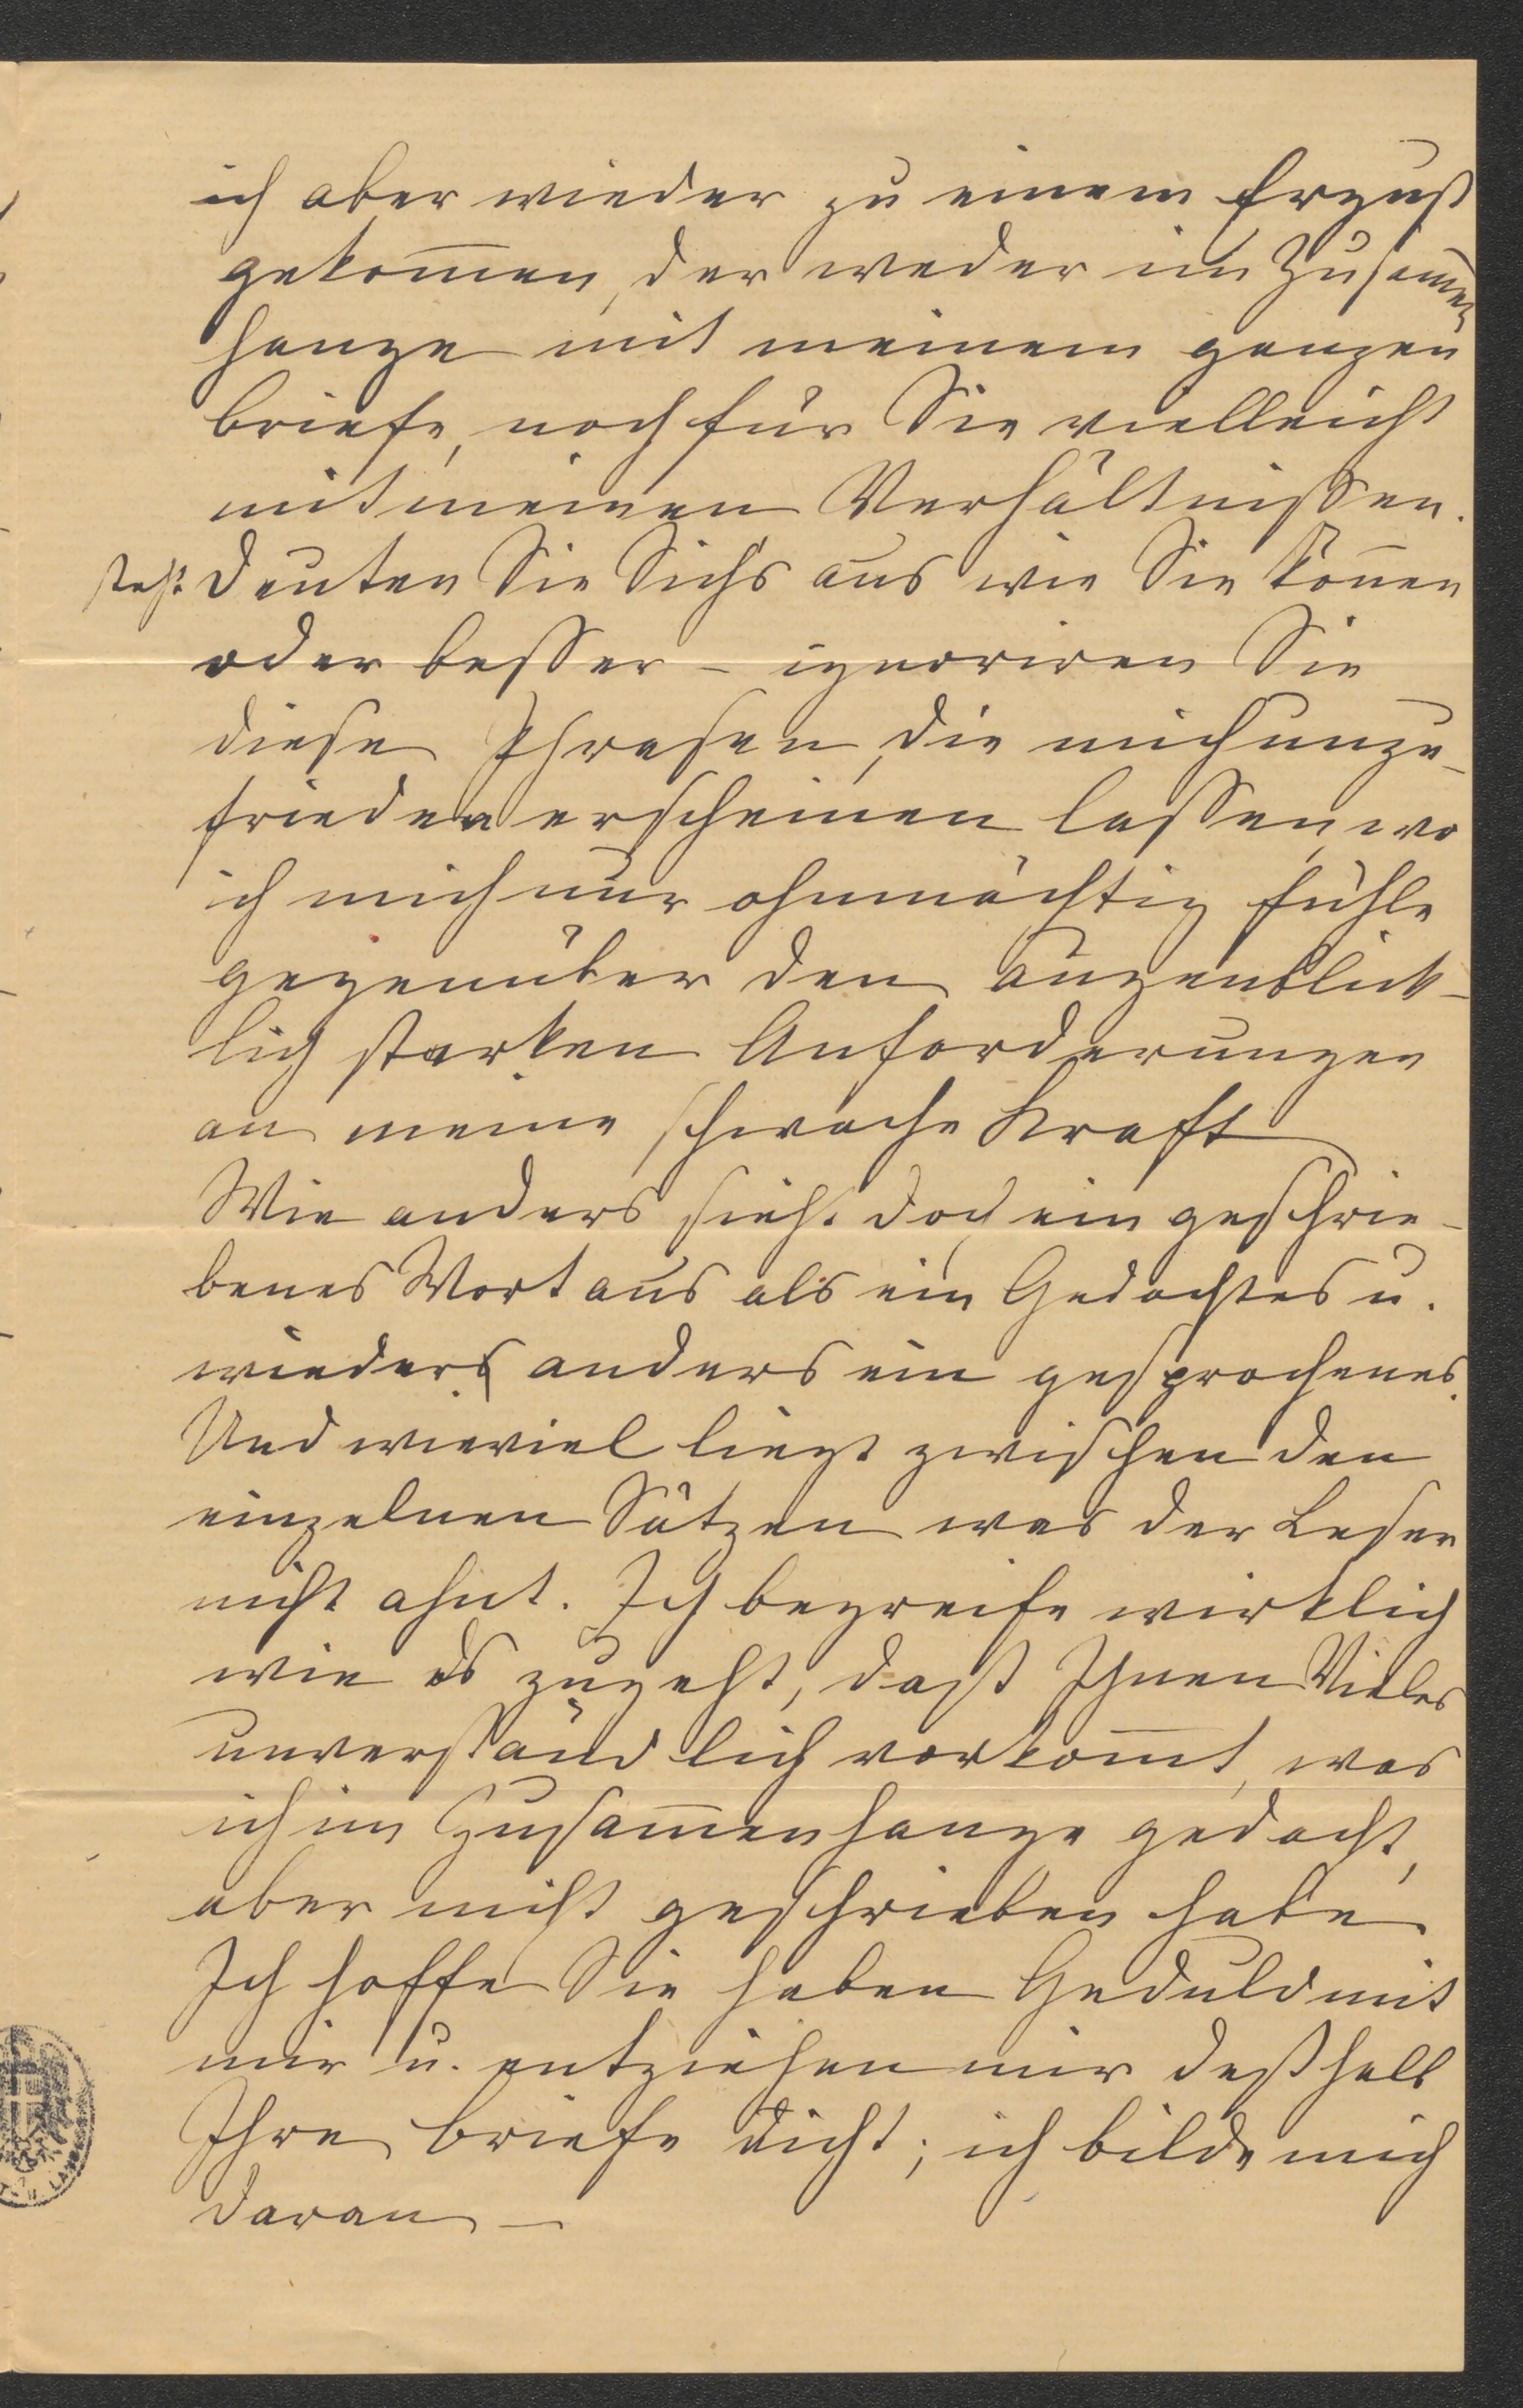 ich aber wieder zu einem Erguß
gekom̅en, der weder im Zusam̅en
hange mit meinem ganzen
Briefe, noch für Sie vielleicht
mit meinen Verhältnissen.
steht Deuten Sie Sich's aus wie Sie kön̅en
oder besser – ignoriren Sie
diese Phrasen, die mich unzu-
frieden erscheinen lassen, wo
ich mich nur ohnmächtig fühle
gegenüber den augenblick-
lich starken Anforderungen
an meine schwache Kraft
Wie anders sieht doch ein geschrie-
benes Wort aus als ein Gedachtes u.
wieder anders ein gesprochenes.
Und wieviel liegt zwischen den
einzelnen Sätzen was der Leser
nicht ahnt. Ich begreife wirklich
wie es zugeht, daß Ihnen Vieles
unverständlich vorkom̅t, was
ich im Zusam̅enhange gedacht,
aber nicht geschrieben habe.
Ich hoffe Sie haben Geduld mit
mir u. entziehen mir deßhalb
Ihre Briefe nicht; ich bilde mich
daran –